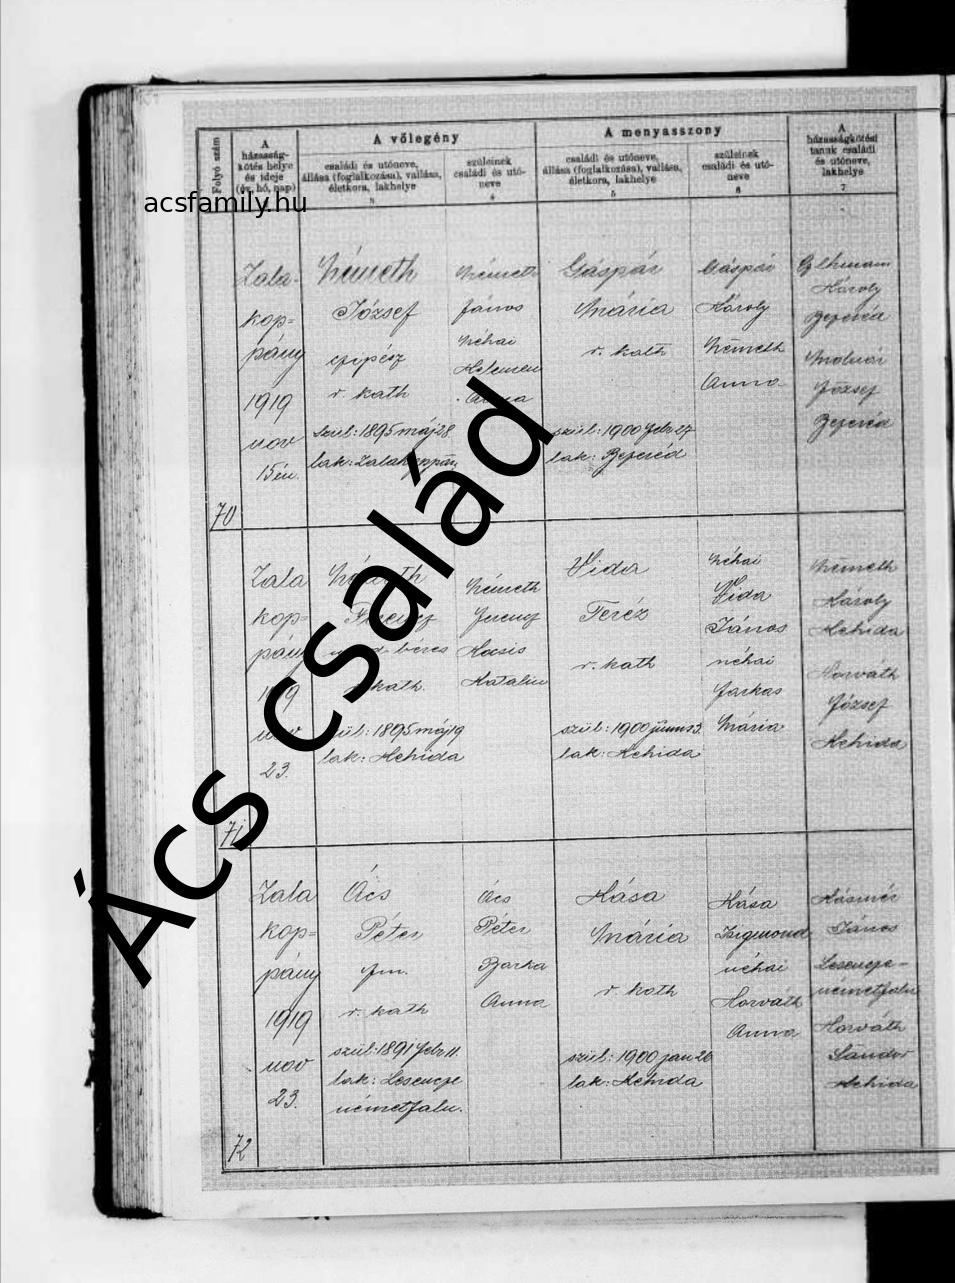 A vőlegény
A menyasszony
Folyó szám
A
házasság-
kötés helye
és ideje
(év, hó, nap)
családi és utóneve,
állása (foglalkozása), vallása,
életkora, lakhelye
3
szüleinek
családi és utó-
neve
4
családi és utóneve,
állása (foglalkozása), vallása,
életkora, lakhelye
5
szüleinek
családi és utó-
neve
6
A
házasságkötési
tanuk családi
és utóneve,
lakhelye
7
acsfamily.hu
Ács család
70
Zala-
kop=
pány
1919
nov
15én.
Németh
József
r. kath
szül: 1895 máj 28
lak: Zalakoppány
Németh
János
néhai
Kelemen
Gáspár
Mária
r. kath
szül: 1900 febr 27
lak:
Gáspár
Károly
Németh
Anna
Károly
Molnár
József
71
Zala
kop=
pány
1919
nov
23.
Németh
Ferencz
béres
kath.
szül: 1895 máj 19
lak: Kehida
Németh
Ferencz
Katalin
Vida
Teréz
r. kath
szül: 1900 junius 3.
lak: Kehida
néhai
Vida
János
néhai
Farkas
Mária
Németh
Károly
Kehida
Horváth
József
Kehida
72
Zala
kop=
pány
1919
nov
23.
Ács
Péter
fm.
r. kath
szül: 1891 febr 11.
lak: Lesencze
németfalu.
Ács
Péter
Barka
Anna
Kása
Mária
r. kath
szül: 1900 jan 26
lak: Kehida
Kása
Zsigmond
néhai
Horváth
Anna
János
Lesencze-
németfalu
Horváth
Sándor
Kehida